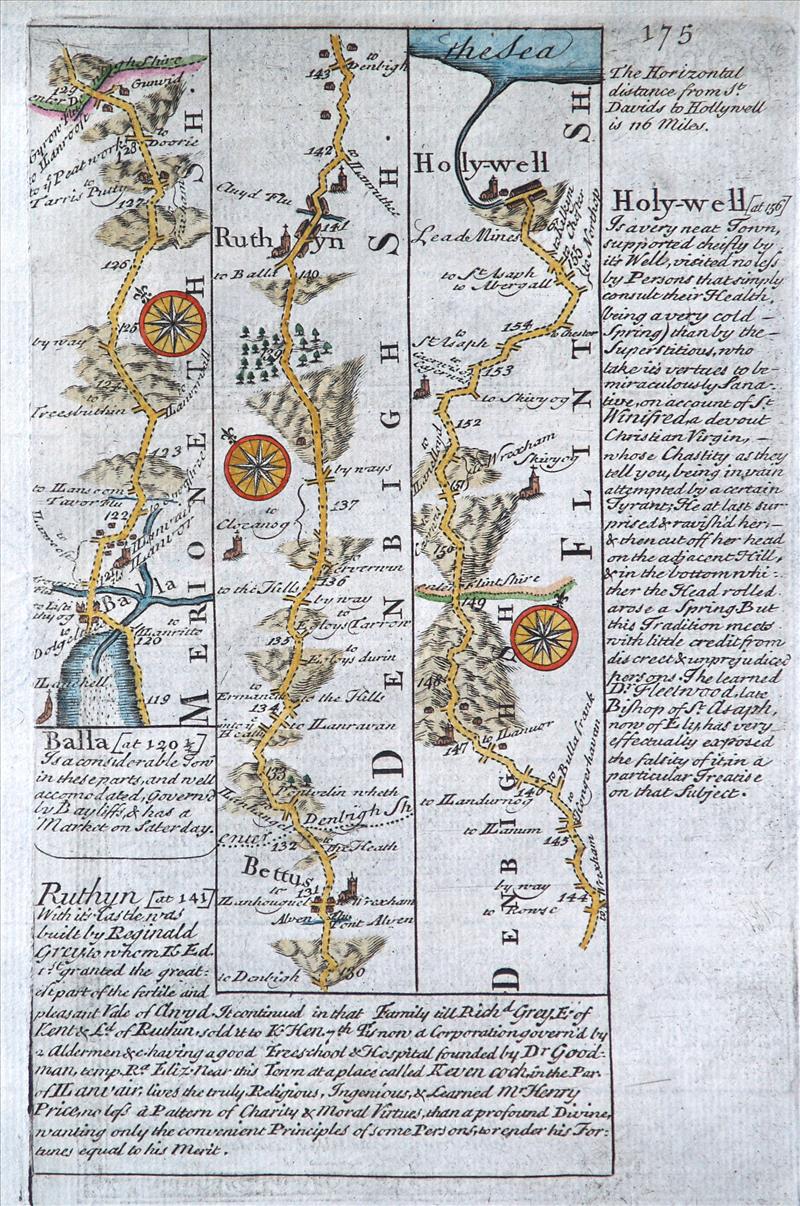 175
The Horizontal
distance from St
Davids to Hollywell
is 116 Miles.
Holy-well [at 156]
Is a very neat Town,
supported cheifly by
it's Well, visited no less
by Persons that simply
consult their Health,
(being a very cold
Spring) than by the
Superstitious, who
take it's vertues to be
miraculously Sana=
tive, on account of St
Winifred, a devout
Christian Virgin,
whose Chastity as they
tell you, being in vain
attempted by a certain
Tyrant; He at last sur
prised & ravish'd her;
& then cut off her head
on the adjacent Hill,
& in the bottom whi=
ther the Head rolled
arose a Spring. But
this Tradition meets
with little credit from
discreet & unprejudiced
persons. The learned
Dr Fleetwood, late
Bishop of St Asaph,
now of Ely, has very
effectually exposed
the falsity of it in a
particular Treatise
on that Subject.
129
Gunvid
to
Doorie
128
to ye Peat work
to
Tarris Pully
127
126
125
by way
124
Treesbuthin
123
to
Tavor Flu
122
121
Balla
to
Dolgelle
to
120
119
MERIONETH SH.
Balla [at 120½]
Is a considerable Tow
in these parts, and well
accomodated, Govern'd
by Bayliffs, & has a
Market on Saterday.
to
Denbigh
143
142
Cluyd Flu
141
Ruthyn
to Balla
140
139
by ways
137
to
Clocanog
136
to the Hills
by way
to
135
to
the Hills
134
to Llanravan
133
Denbigh Sh
enter
132
to
the Heath
Bettus
131
to
Wrexham
Alven Flu
Pont Alven
to Denbigh
130
DENBIGH SH.
the Sea
Holy-well
Lead Mines
155
to St Asaph
to Abergall
154
to Chester
to
St Asaph
153
to Skivyog
152
to
Wrexham
Skivyog
151
150
enter Flint Shire
149
148
147
to Llanuor
146
to Llandurnog
to Llanum
145
by way
to Rowse
144
to Wrexham
FLINT SH
DENBIGH SH
Ruthyn [at 141]
With it's Castle was
built by Reginald
Grey, to whom K. Ed.
1st granted the great=
est part of the fertile and
pleasant Vale of Cluyd. It continued in that Family till Richd Grey, E. of
Kent & Ld of Ruthin, sold it to K. Hen. 7th. Tis now a Corporation govern'd by
2 Aldermen &c having a good Freeschool & Hospital founded by Dr Good=
man, temp. Ra Eliz. Near this Town at a place called Keven coch, in the Par
of Llanvair, lives the truly Religious, Ingenious, & Learned Mr Henry
Price, no less a Pattern of Charity & Moral Virtues, than a profound Divine,
wanting only the convenient Principles of some Persons, to render his For=
tunes equal to his Merit.